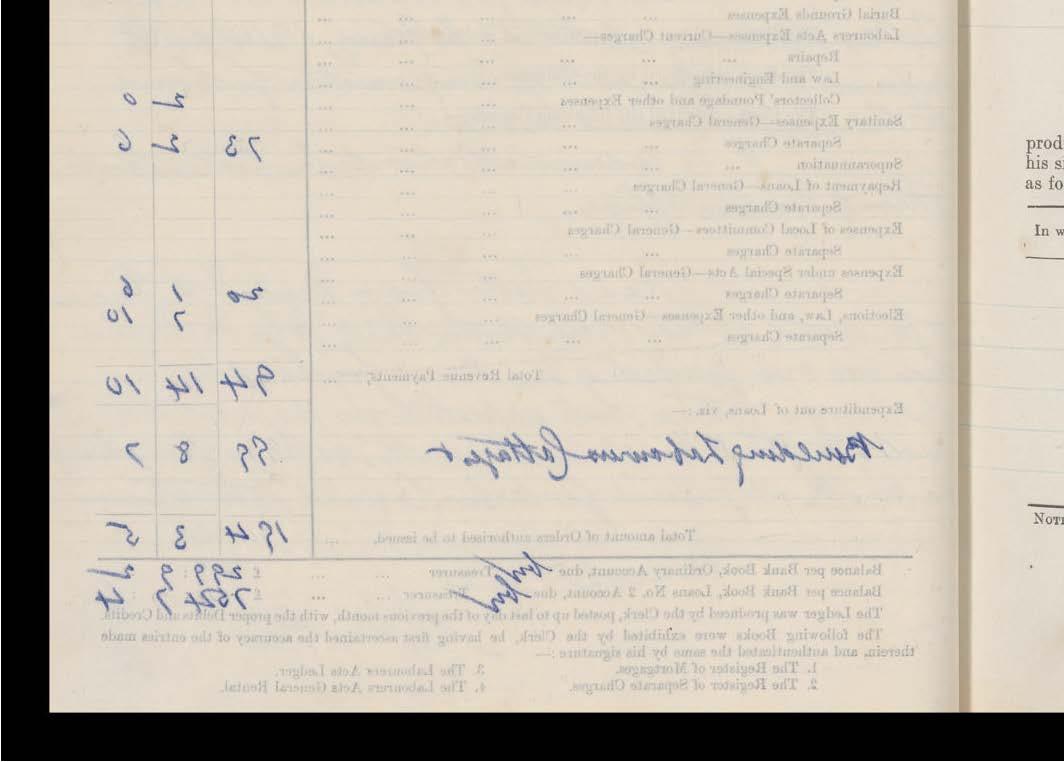 Burial Grounds Expenses ... ... ... ... ...
Labourers Acts Expenses—Current Charges— ... ... ...
Repairs ... ... ... ... ... ...
Law and Engineering ... ... ... ... ...
Collectors' Poundage and other Expenses ... ... ... 0
Sanitary Expenses—General Charges ... ... ... ...
Separate Charges ... ... ... ... ... 73 6
Superannuation ... ... ... ... ...
Repayment of Loans—General Charges ... ... ... ...
Separate Charges ... ... ... ... ...
Expenses of Local Committees—General Charges ... ... ...
Separate Charges ... ... ... ... ...
Expenses under Special Acts—General Charges ... ... ...
Separate Charges ... ... ... ... ... 20 1 6
Elections, Law, and other Expenses—General Charges ... ... ... 10
Separate Charges ... ... ... ... ...
Total Revenue Payments, ... 94 14 10
Expenditure out of Loans, viz.:—
Building Labourers Cottages 99 8 7
Total amount of Orders authorised to be issued, ... 194 3 5
Balance per Bank Book, Ordinary Account, due by Treasurer ... ... £
Balance per Bank Book, Loans No. 2 Account, due by Treasurer ... ... £
The Ledger was produced by the Clerk, posted up to last day of the previous month, with the proper Debits and Credits.
The following Books were exhibited by the Clerk, he having first ascertained the accuracy of the entries made
therein, and authenticated the same by his signature :—
1. The Register of Mortgages. 3. The Labourers Acts Ledger.
2. The Register of Separate Charges. 4. The Labourers Acts General Rental.
prod
his si
as fo
In w
NOTE